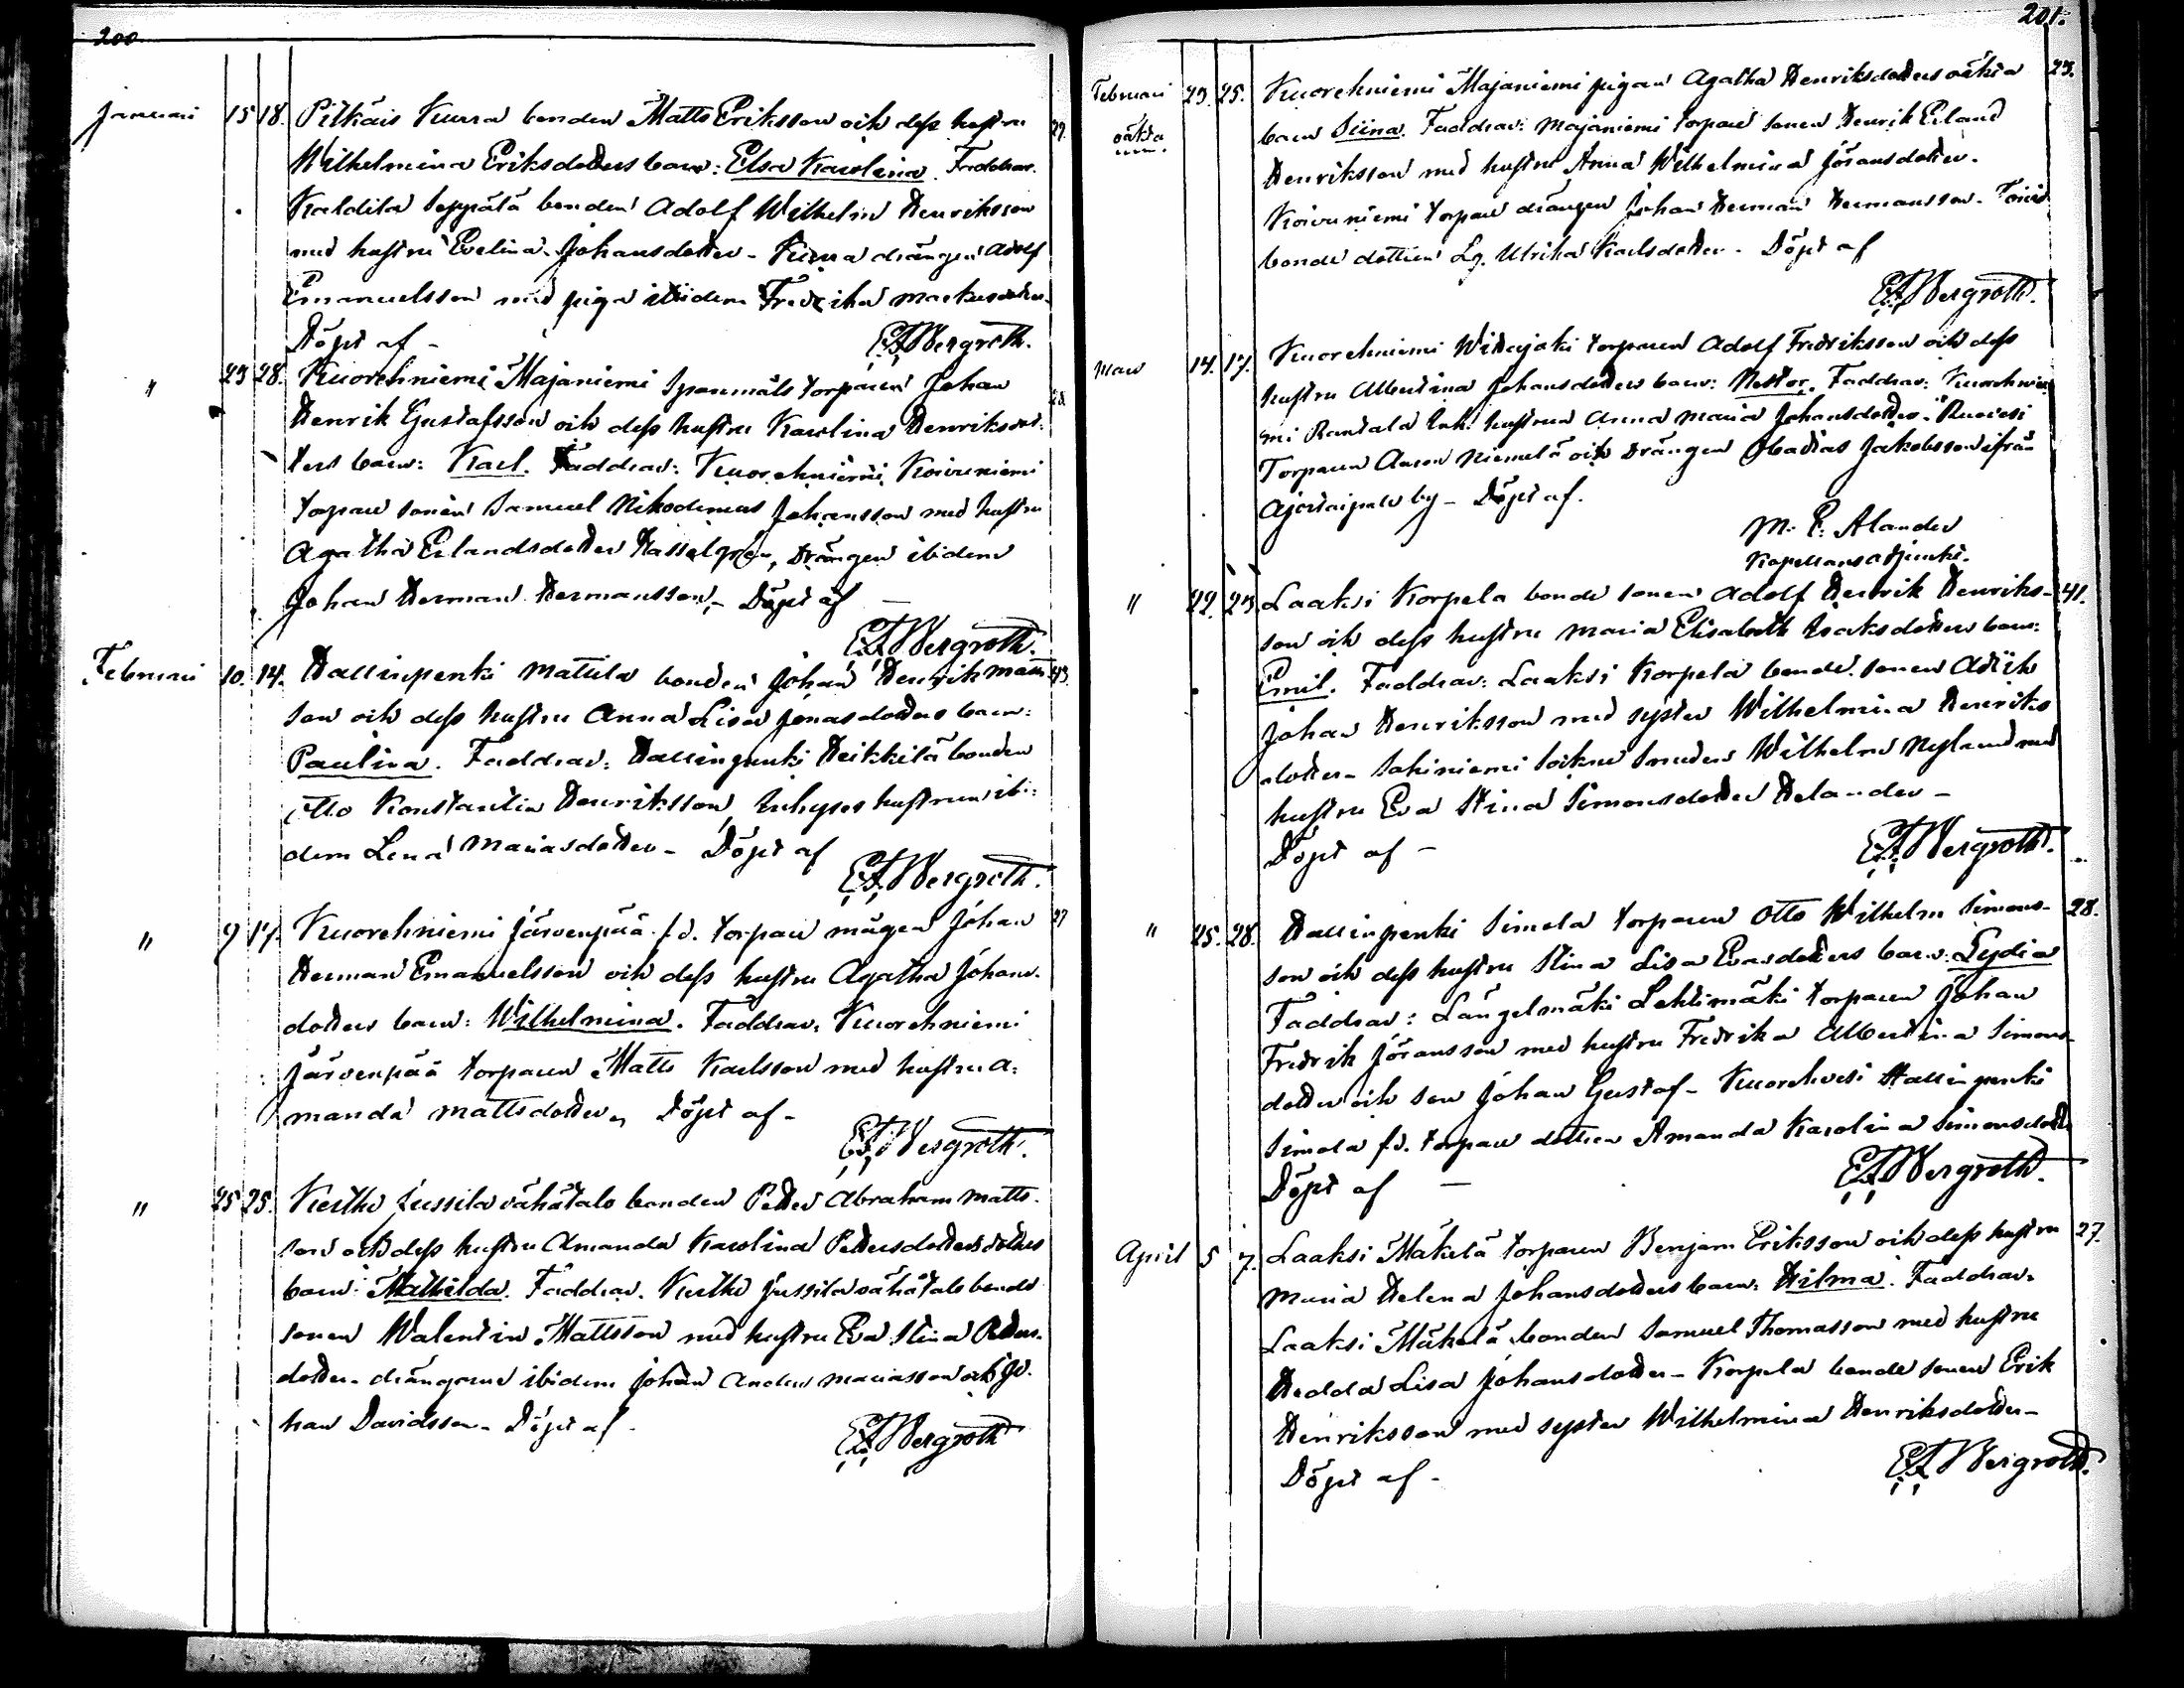 200
Januari 15 18. Pitkäis Kurra bonden Matts Eriksson och dess hustru 29.
Wilhelmina Eriksdotters barn: Elsa Karolina. Faddrar.
Kaldila Seppälä bonden Adolf Wilhelm Henriksson
med hustru Evelina Johansdotter - Kurra drängen Adolf
Emanuelsson med piga ibidem Fredrika Markusdotter.
Döpt af - E.F. Bergroth.
" 23 28. Kuorehniemi Majaniemi Spanmåls torparen Johan 28.
Henrik Gustafsson och dess hustru Karolina Henriksdot-
ters barn: Karl. Faddrar: Kuorehniemi Koivuniemi
torpare sonen Samuel Nikodemus Johansson med hustru
Agatha Erlandsdotter Hasselgren, Drängen ibidem
Johan Herman Hermansson, - Döpt af -
E.F. Bergroth.
Februari 10. 14. Hallinpenki Mattila bonden Johan Henrik Matts 43.
son och dess hustru Anna Lisa Jonasdotters barn:
Paulina. Faddrar: Hallinpenki Heikkilä bonden
Otto Konstantin Henriksson, Inhyses hustrun ibi-
dem Lena Mariasdotter - Döpt af
E.F. Bergroth.
" 9 17. Kuorehniemi Järvenpää f.d. torpare mågen Johan 27
Herman Emanuelsson och dess hustru Agatha Johans-
dotters barn: Wilhelmina. Faddrar: Kuorehniemi
Järvenpää torparen Matts Karlsson med hustru A-
manda Mattsdotter, Döpt af -
E.F. Bergroth.
" 25 25. Keitho Jussila vähätalo bonden Petter Abraham Matts-
son och dess hustru Amanda Karolina Pettersdotters
barn: Mathilda. Faddrar. Keitho Jussila vähätalo bonde
sonen Walentin Mattsson med hustru Eva Stina Petters-
dotter - drängarne ibidem Johan Anders Mariasson och Jo-
han Davidsson - Döpt af -
E.F. Bergroth
201.
Februari 23. 25. Kuorehniemi Majaniemi pigan Agatha Henriksdotters oäkta 23.
oäkta barn Siina. Faddrar: Majaniemi torpare sonen Henrik Erland
Henriksson med hustru Anna Wilhelmina Jöransdotter.
Koivuniemi torpare drängen Johan Herman Hermansson.
bonde dottren Lg. Ulrika Karlsdotter - Döpt af
E.F. Bergroth.
Mars 14. 17. Kuorehniemi torparen Adolf Fredriksson och dess
hustru Albertina Johansdotters barn: Nestor. Faddrar: Kuorehnie-
mi Rantala Inh. hustrun Anna Maria Johansdotter. Ruovesi
Torparen Niemelä och Drängen Obadias Jakobsson ifrån
by - Döpt af.
M. E. Alander
Kapellansadjunkt.
" 22. 23 Laaksi Korpela bonde sonen Adolf Henrik Henriks- 41.
son och dess hustru Maria Elisabeth Isaksdotters barn:
Emil. Faddrar: Laaksi Korpela bonde sonen
Johan Henriksson med syster Wilhelmina Henriks
dotter - Sakiniemi Smeden Wilhelm Nylund med
hustru Eva Stina Simonsdotter Helander -
Döpt af - E.F. Bergroth.
" 25. 28. Hallinpenki Simola torparen Otto Wilhelm Simons- 28.
son och dess hustru Stina Lisa Evasdotters barn: Lydia
Faddrar: Längelmäki Lehtimäki torparen Johan
Fredrik Jöransson med hustru Fredrika Albertina Simons-
dotter och son Johan Gustaf - Kuorehvesi Hallinpenki
Simola f.d. torpare dottren Amanda Karolina Simonsdotter
Döpt af - E.F. Bergroth.
April 5 7. Laaksi Mäkelä torparen Benjam Eriksson och dess hustru 27.
Maria Helena Johansdotters barn: Hilma. Faddrar.
Laaksi Mäkelä bonden Samuel Thomasson med hustru
Hedda Lisa Johansdotter - Korpela bonde sonen Erik
Henriksson med syster Wilhelmina Henriksdotter -
Döpt af - E.F. Bergroth.